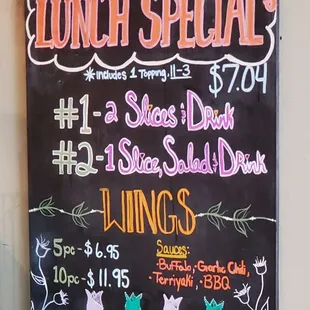 LUNCH SPECIAL
*Includes 1 Topping, 11-3
$7.04
#1-2 Slices & Drink
#2-1 Slice, Salad & Drink
WINGS
5pc - $6.95
10pc - $11.95
Sauces:
•Buffalo, •Garlic Chili,
•Terriyaki, •BBQ